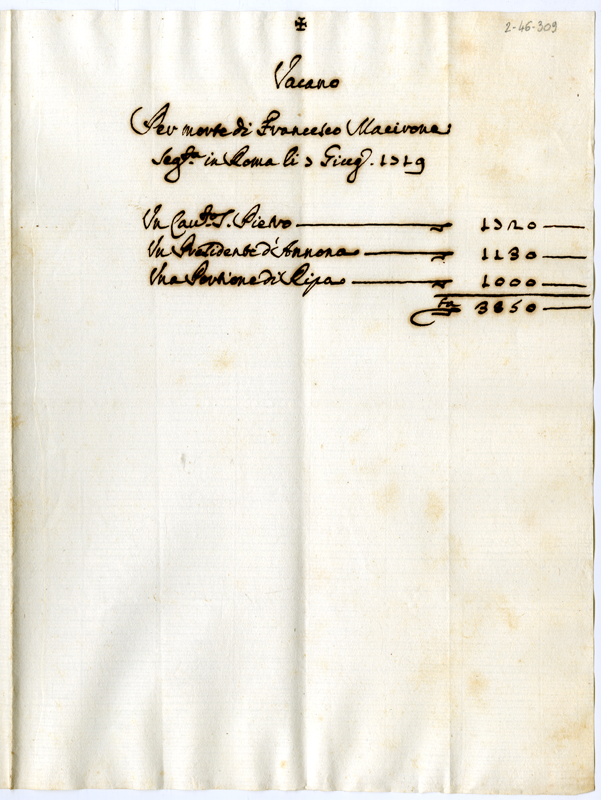 ✠
2-46-309
Vacano
Per morte di Francesco Macirone
seg.ta in Roma li 3 Giug. 1719
Un Cau.to S. Pietro 1720
Un Presidente d'Annona 1130
Una Portione di Ripa 1000
3850